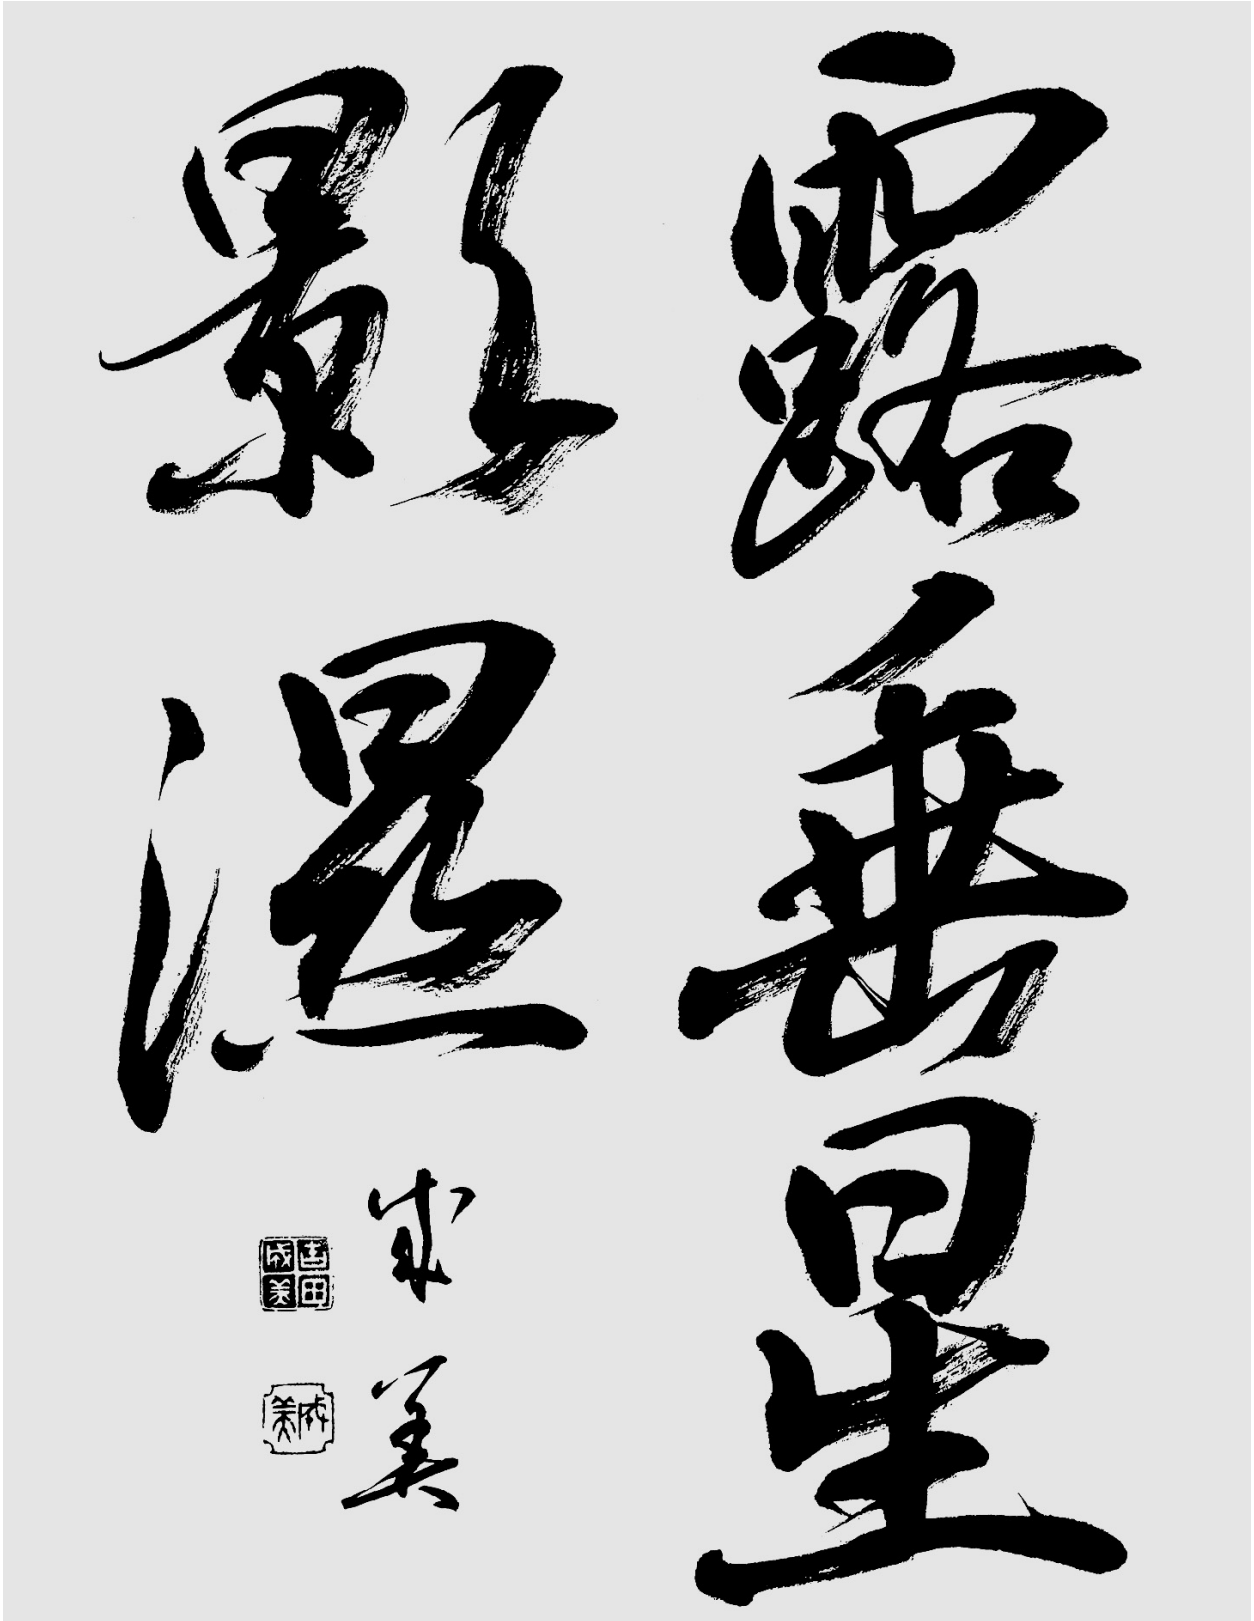 露垂星
影湿
成美
吉田成美
成美